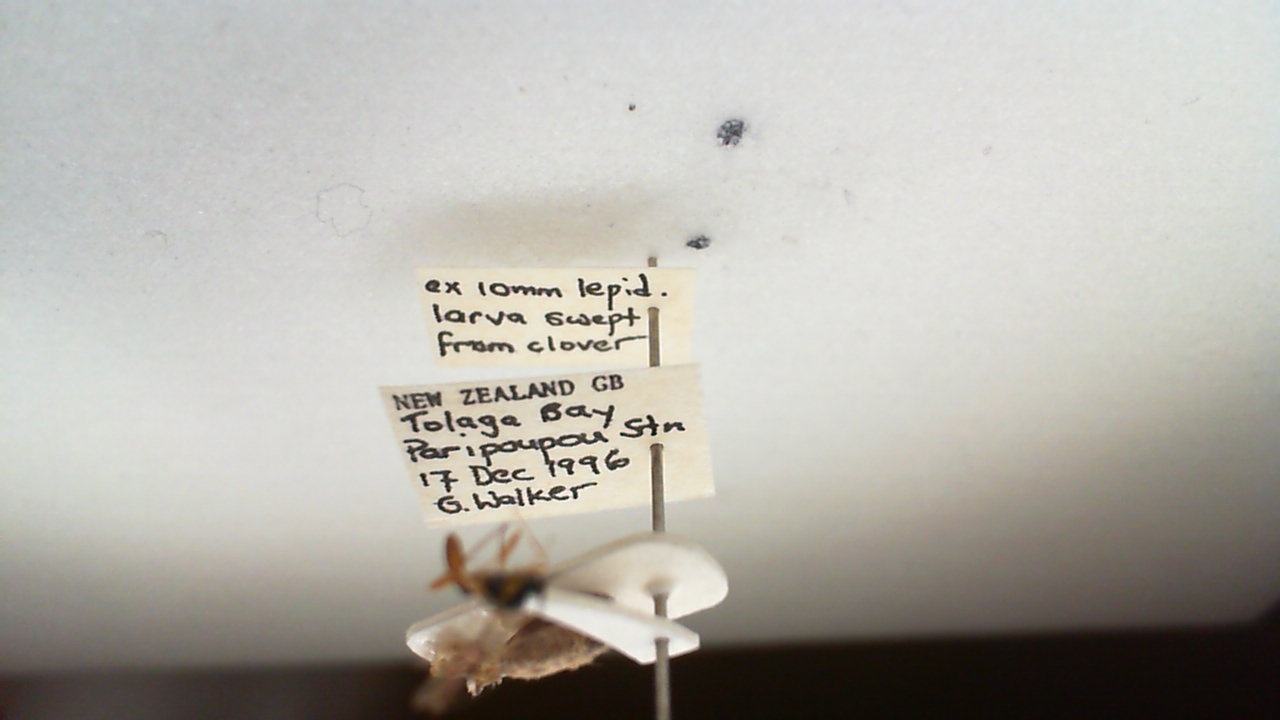 ex 10mm lepid.
larva swept
from clover
NEW ZEALAND GB
Tolaga Bay
Paripoupou Stn
17 Dec 1996
G. Walker